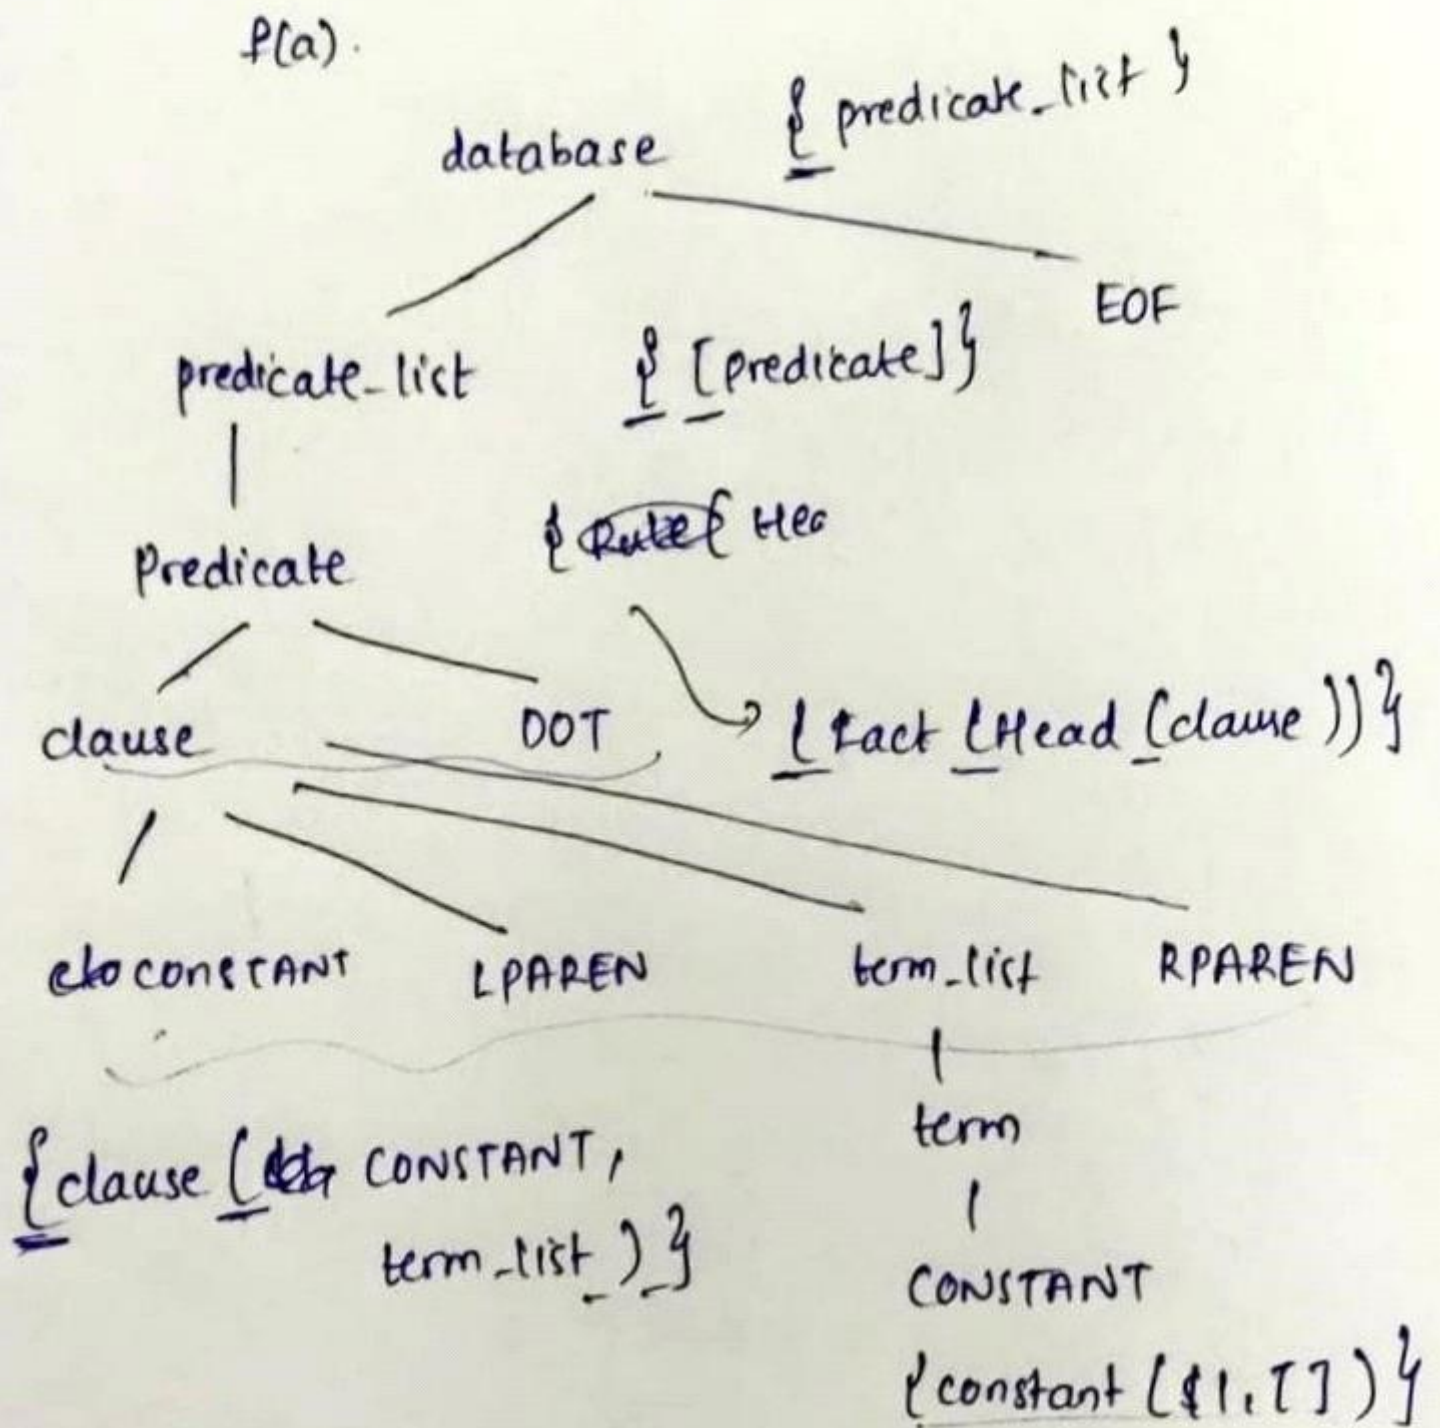 P(a).
{ predicate_list }
database
EOF
predicate_list
{ [predicate] }
Predicate
{ Rule { Hea
clause
DOT
{ Fact (Head (clause )) }
CONSTANT
LPAREN
term_list
RPAREN
term
{ clause ( CONSTANT,
term_list ) }
CONSTANT
{ constant ($1, [ ] ) }